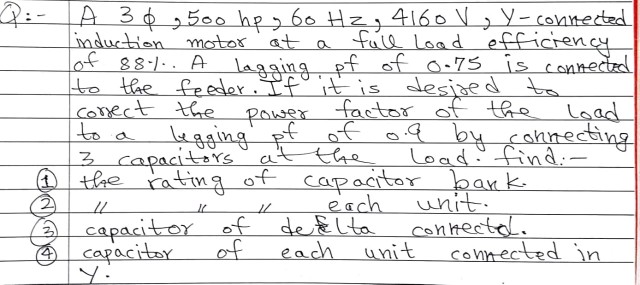 Q:- A 3 ϕ, 500 hp, 60 Hz, 4160 V, Y-connected
induction motor at a full load efficiency
of 88%. A lagging pf of 0.75 is connected
to the feeder. If it is desired to
correct the power factor of the load
to a lagging pf of 0.9 by connecting
3 capacitors at the load. find:-
① the rating of capacitor bank.
② " " " each unit.
③ capacitor of delta connectd.
④ capacitor of each unit connected in
Y.